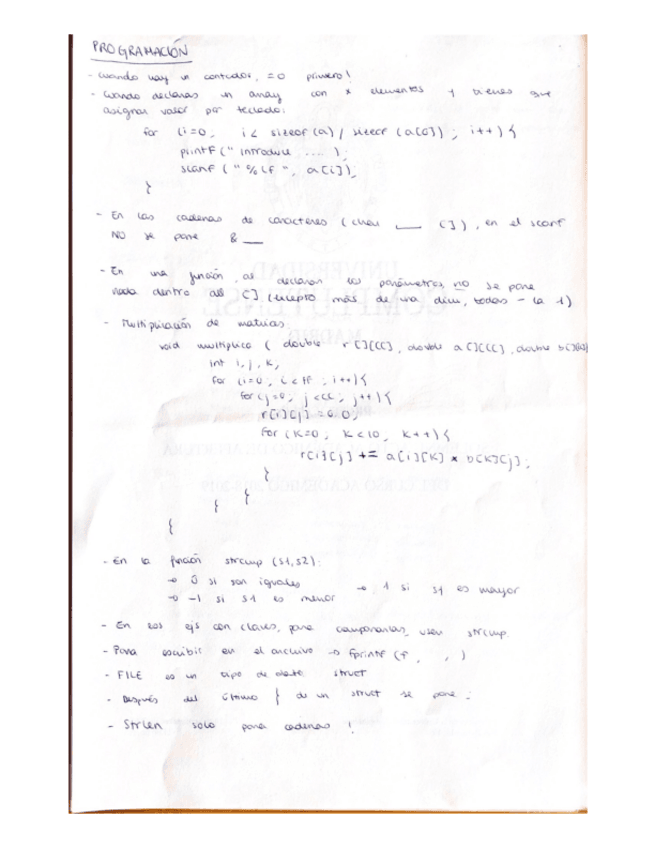 PROGRAMACIÓN
- Cuando hay un contador, =0 primero!
- Cuando declaras un array con x elementos y tienes que
asignar valor por teclado:
for (i=0, i< sizeof(a)/sizeof(a[0]); i++){
printf(" introduce .... );
scanf (" %lf ", a[i]);
}
- En las cadenas de caracteres (char ___ []), en el scanf
NO se pone & __
- En una función, al declarar los parámetros, no se pone
nada dentro del [] (excepto más de una dim, todas - la 1)
- Multiplicación de matrices:
void multiplica ( double r[][CC], double a[][CC], double b[][
int i, j, K,
for (i=0, i<FF ; i++){
for(j=0; j<CC; j++){
r[i][j] = 0.0;
for (K=0; K<10, K++){
r[i][j] += a[i][K] * b[K][j];
}
}
}
}
- En la función strcmp (s1,s2):
→ 0 si son iguales → 1 si s1 es mayor
→ -1 si s1 es menor
- En los ejs con claves, para compararlas, usar strcmp.
- Para escribir en el archivo → fprintf (f , , )
- FILE es un tipo de dato struct
- Después del último } de un struct se pone ;
- Strlen solo para cadenas !
UNIVERSIDAD
COMPLUTENSE
MADRID